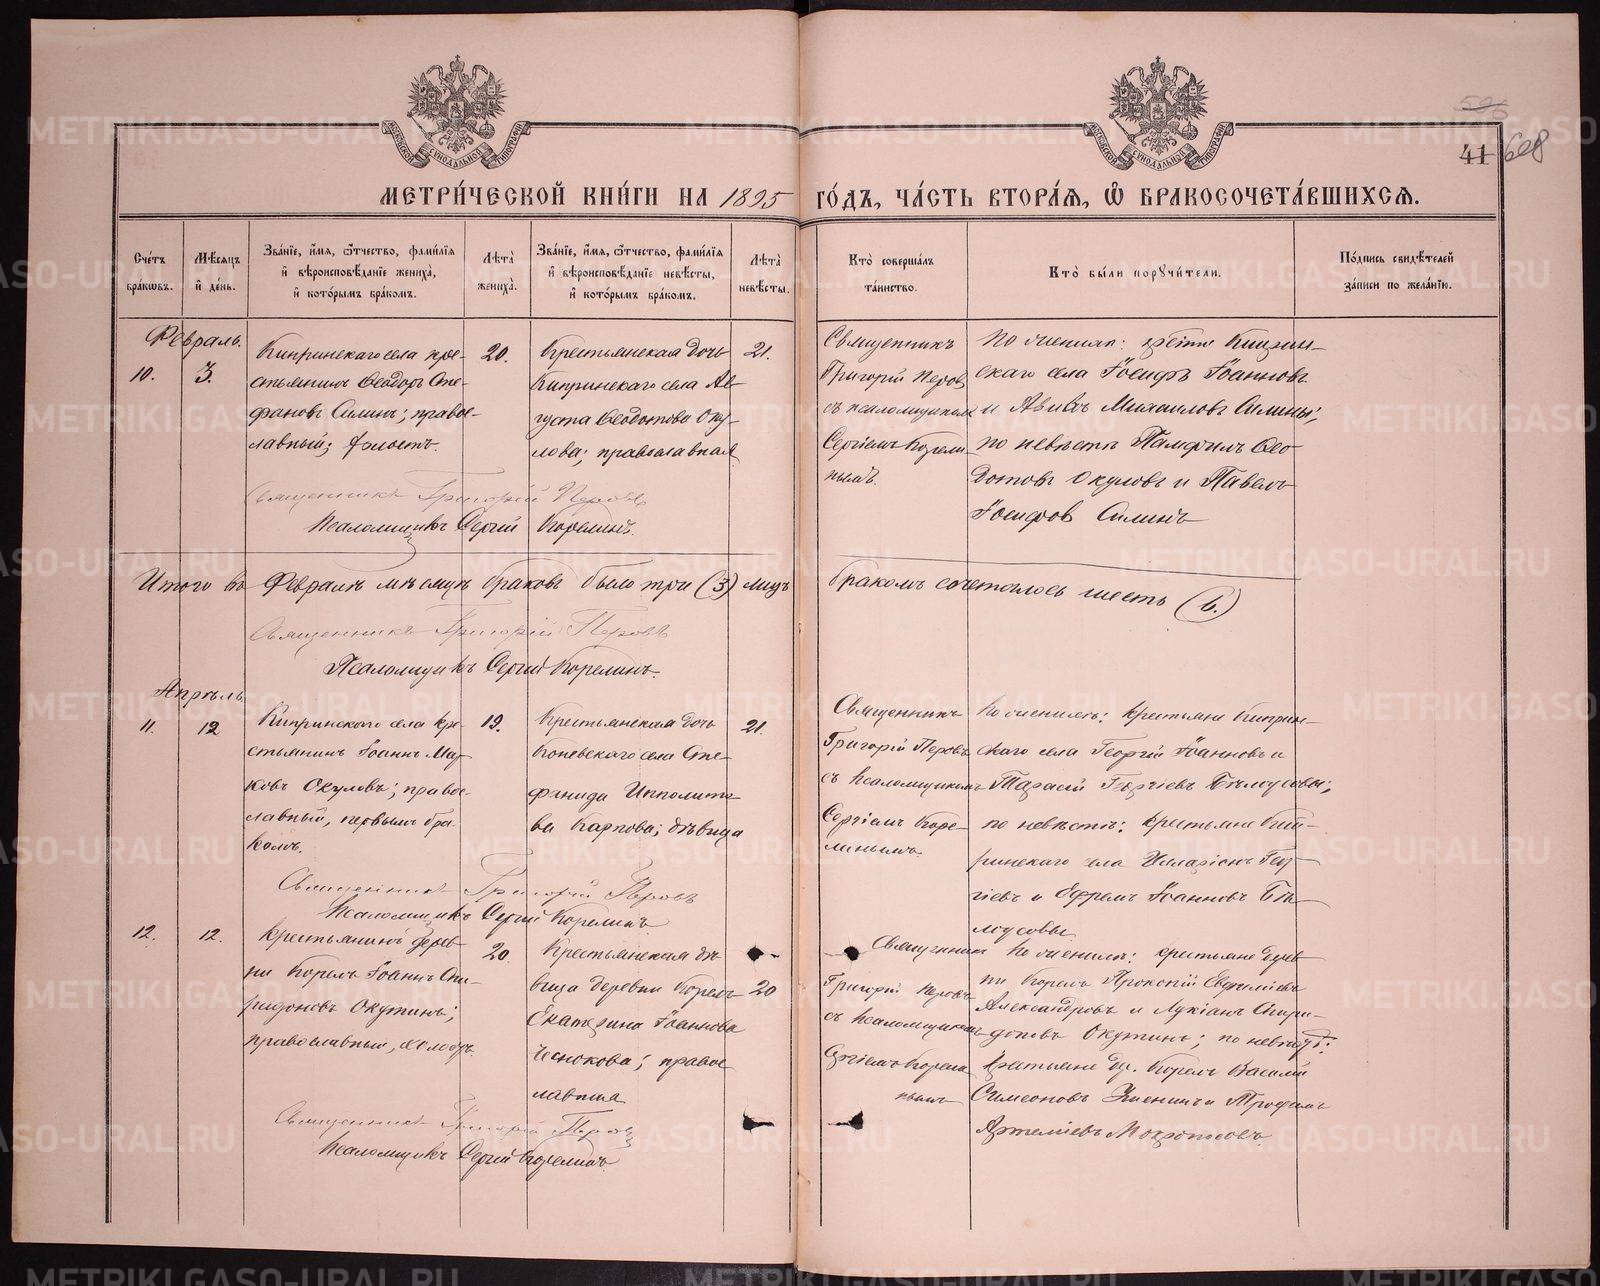 МОСКОВСКОЙ СУНОДАЛЬНОЙ ТИПОГРАФІИ
МОСКОВСКОЙ СУНОДАЛЬНОЙ ТИПОГРАФІИ
41 608
МЕТРИ́ЧЕСКОЙ КНИ́ГИ НА 1895 ГО́ДЪ, ЧА́СТЬ ВТОРА́Я, Ѡ БРАКОСОЧЕТА́ВШИХСЯ.
Сче́тъ бра́ковъ.
Мѣ́сяцъ и де́нь.
Зва́ніе, и́мя, ѻ́тчество, фами́лія и вѣроисповѣ́даніе жениха̀, и кото́рымъ бра́комъ.
Лѣ́та жениха̀.
Зва́ніе, и́мя, ѻ́тчество, фами́лія и вѣроисповѣ́даніе невѣ́сты, и кото́рымъ бра́комъ.
Лѣ́та невѣ́сты.
Кто̀ соверша́лъ та́инство.
Кто̀ бы́ли поручи́тели.
По́дпись свидѣ́телей за́писи по жела́нію.
Февраль.
10.
3.
Кипринскаго села кре-
стьянинъ Ѳеодоръ Сте-
фановъ Силинъ; правос-
лавный; холостъ.
20.
Крестьянская дочь
Кипринскаго села Ав-
густа Ѳеодотова Оку-
лова; православная
21.
Священникъ
Григорій Перовъ
съ псаломщикомъ
Сергіемъ Корели-
нымъ.
По женихѣ:
скаго села Іосифъ Іоанновъ
и Авивъ Михаиловъ Силины;
по невѣстѣ Памфилъ Ѳео-
дотовъ Окуловъ и Павелъ
Іосифовъ Силинъ
Священникъ Григорій Перовъ
Псаломщикъ Сергій Корелинъ.
Итого въ Февралѣ мѣсяцѣ браковъ было три (3) лицъ бракомъ сочеталось шесть (6.)
Священникъ Григорій Перовъ
Псаломщикъ Сергій Корелинъ.
Апрѣль
11.
12
Кипринскаго села кре-
стьянинъ Іоаннъ Мар-
ковъ Окуловъ; правос-
лавный, первымъ бра-
комъ.
19.
Крестьянская дочь
Коневскаго села Сте-
фанида Ипполито-
ва Карпова; дѣвица
21.
Священникъ
Григорій Перовъ
съ псаломщикомъ
Сергіемъ Коре-
линымъ.
По женихѣ: крестьяне Киприн-
скаго села Георгій Іоанновъ и
Тарасій Георгіевъ Бѣлоусовы;
по невѣстѣ: крестьяне Кип-
ринскаго села Иларіонъ Геор-
гіевъ и Ефремъ Іоанновъ Бѣ-
лоусовы
Священникъ Григорій Перовъ
Псаломщикъ Сергій Корелинъ
12.
12.
Крестьянинъ дерев-
ни Корелъ Іоаннъ Спи-
ридоновъ Окутинъ;
православный, холостъ.
20
Крестьянская дѣ-
вица деревни Корелъ
Екатерина Іоаннова
Чеснокова; правос-
лавная
20
Священникъ
Григорій Перовъ
съ псаломщикомъ
Сергіемъ Корели-
нымъ
По женихѣ: крестьяне дерев-
ни Корелъ Прокопій Евфиміевъ
Александровъ и Лукіанъ Спири-
доновъ Окутинъ; по невѣстѣ:
крестьяне др. Корелъ Василій
Симеоновъ и Трофимъ
Артеміевъ Мокроносовъ
Священникъ Григорій Перовъ
Псаломщикъ Сергій Корелинъ.
METRIKI.GASO-URAL.RU